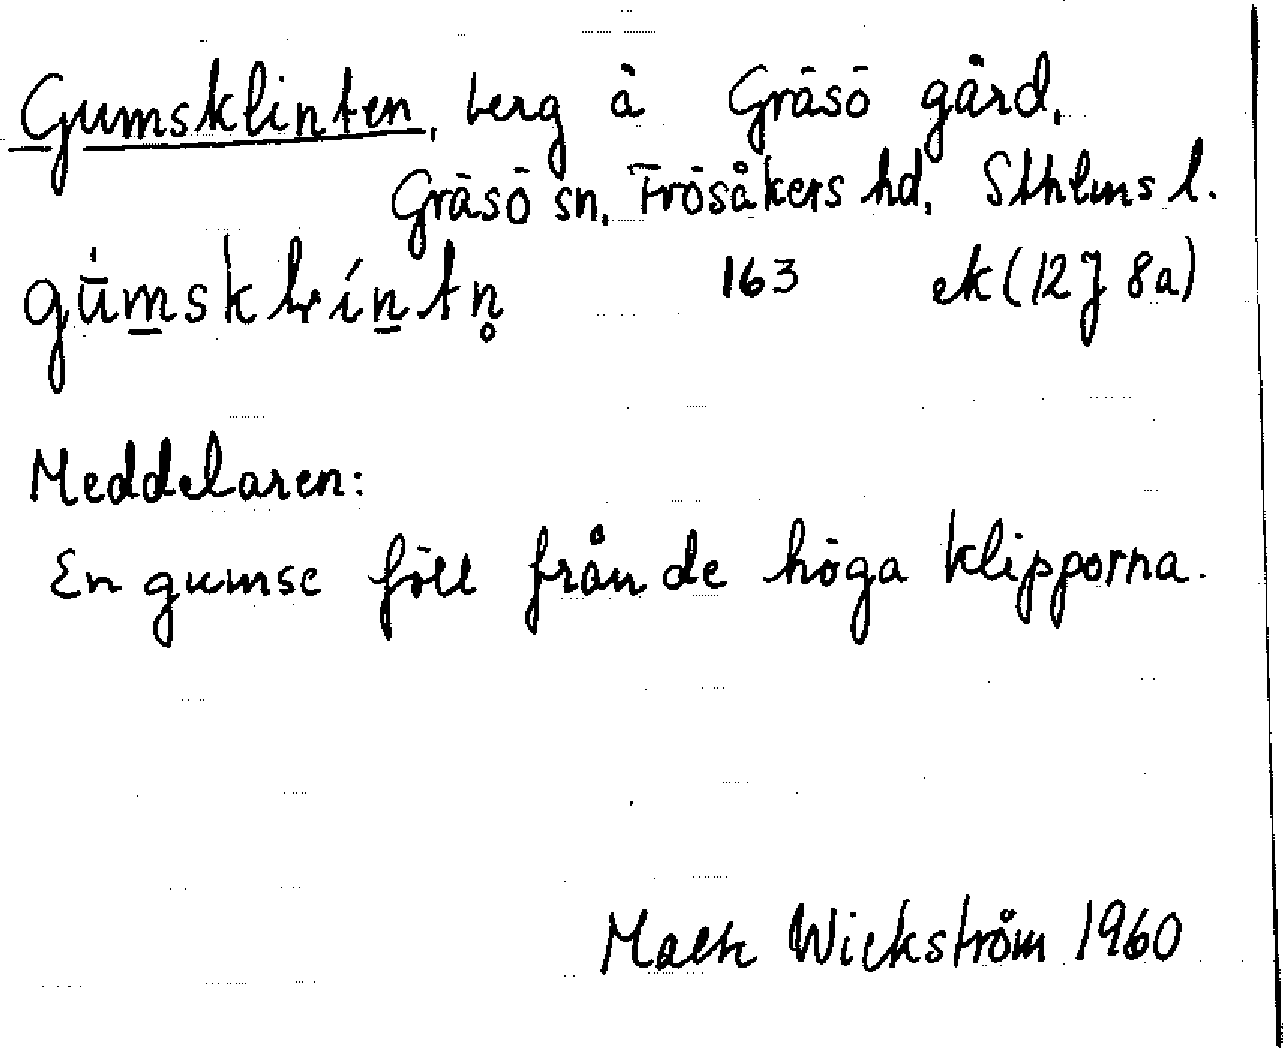 Gumsklinten, berg å Gräsö gård,
Gräsö sn, Frösåkers hd, Sthlms l.
163 ek (12J 8a)
Meddelaren:
En gumse föll från de höga klipporna.
Wickström 1960